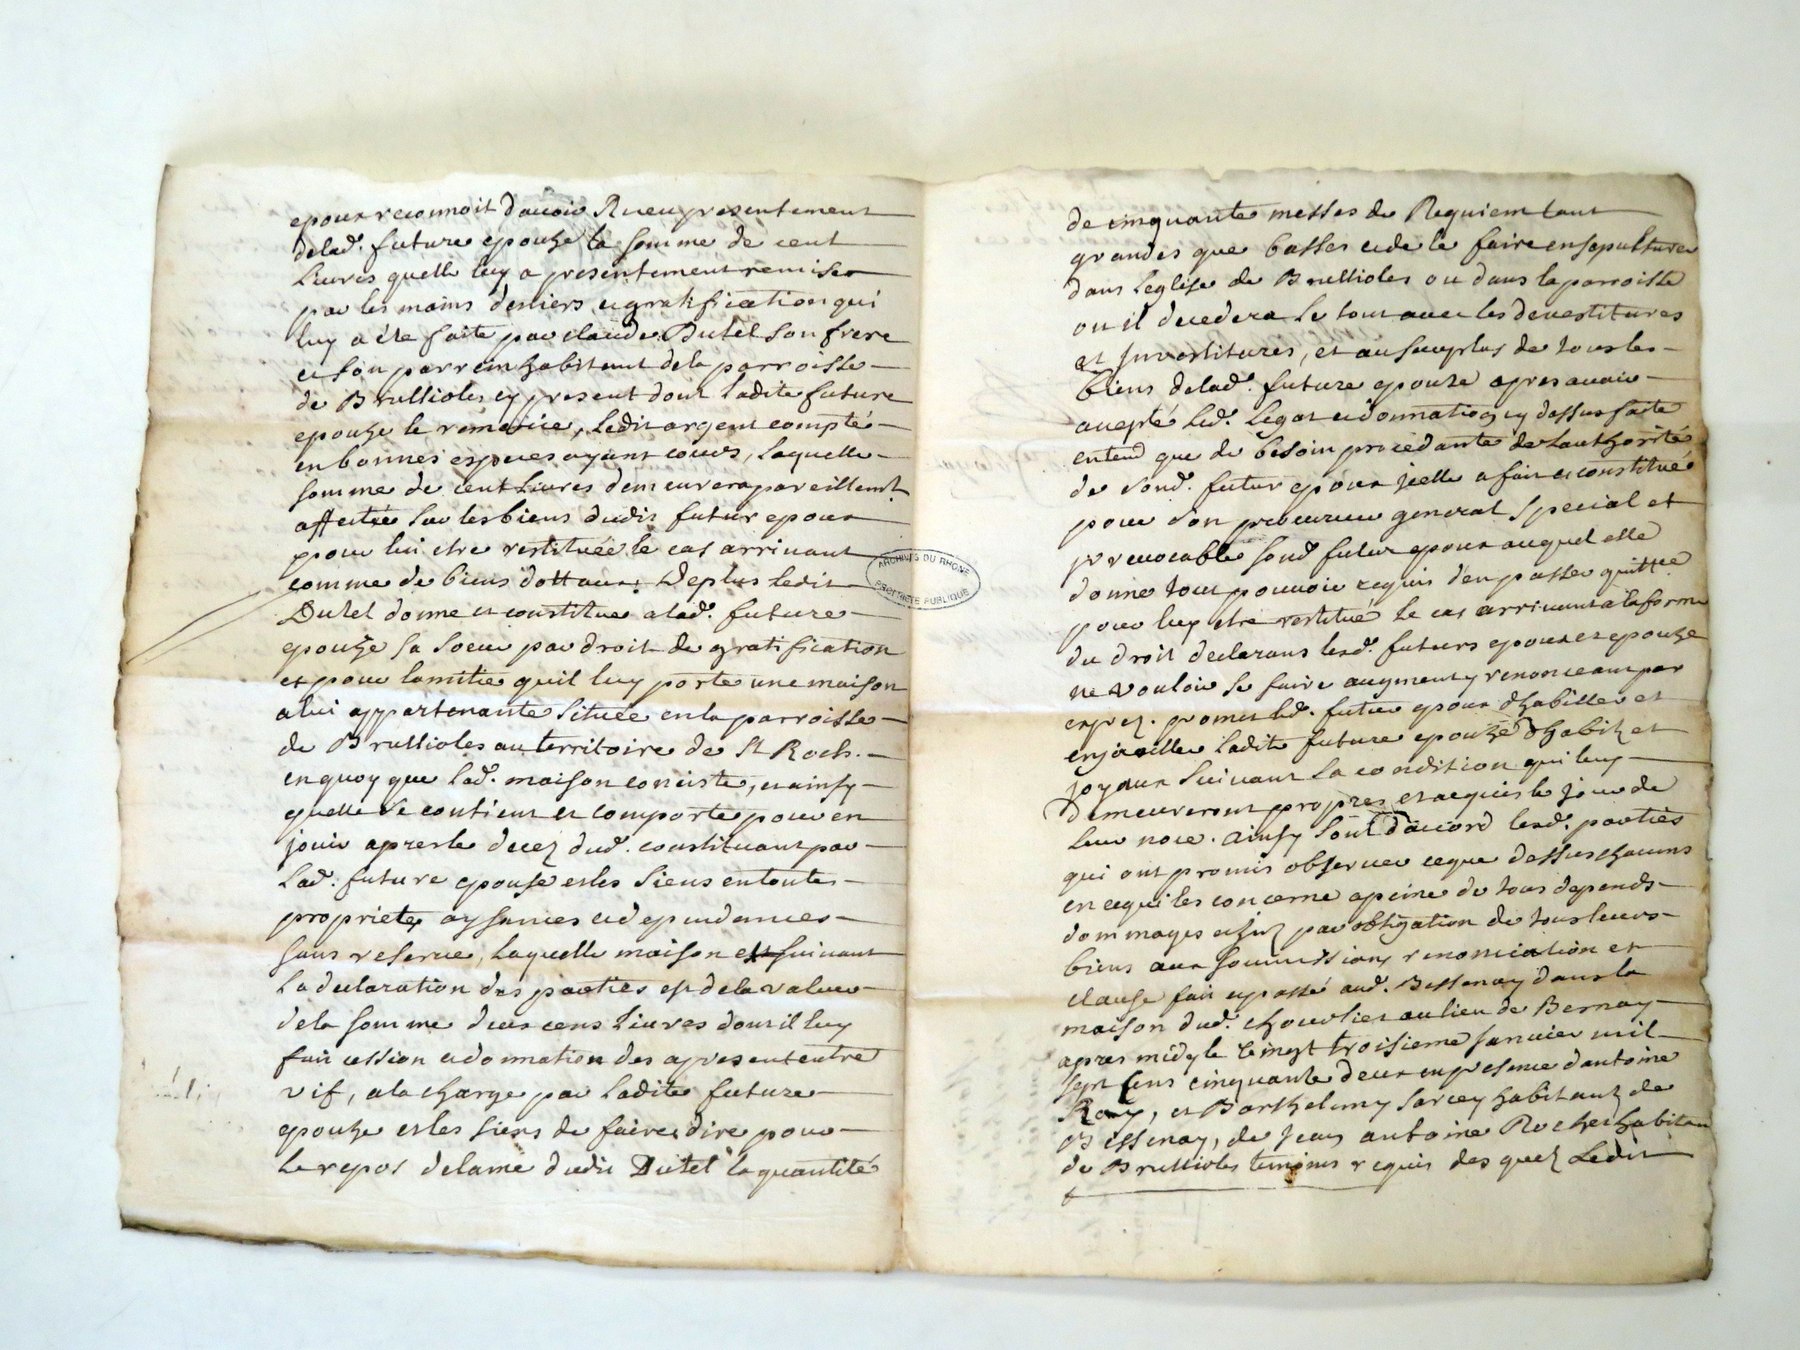 epoux reconnoit davoir Receu presentement
delad. future epouze la somme de cent
Livres quelle luy a presentement remises
par les mains deniers et gratification qui
luy a été faite par claude Dutel son frere
et son parrein habitant dela parroisse
de Brullioles cy present dont ladite future
epouze le remercie, Ledit argent compté
en bonnes especes ayant cours, Laquelle
somme de cent Livres demeurera pareillemt.
affectée sur les biens dudit futur epoux
pour lui etre restituée le cas arrivant
comme de biens dottaux. Deplus ledit
Dutel donne et constitue a lad. future
epouze sa soeur par droit de gratification
et pour lamitié quil luy porte une maison
a lui appartenante située en la parroisse
de Brullioles au territoire de St Roch.
en quoy que lad. maison consiste, et ainsy
quelle se contient et comporte pour en
jouir apres le decez dud. constituant par
Lad. future epouse et les siens en toute
proprietez aysances et dependances
sans reserve, Laquelle maison est suivant
La declaration des parties est de la valeur
de la somme deux cens Livres dont il luy
fait cession et donnation des apresent entre
vif, a la charge par Ladite future
epouze et les siens de faire dire pour
le repos de lame dudit Dutel la quantité
ARCHIVES DU RHONE
PROPRIÉTÉ PUBLIQUE
de cinquante messes de Requiem tant
grandes que basses et de le faire ensepulturer
dans Leglise de Brullioles ou dans la parroisse
ou il decedera le tout avec les devestitures
et Investitures, et au surplus de tous les
biens delad. future epouze apres avoir
accepté led. Legat et donnation cy dessus faite
entend que de besoin procedante de Lauthorité
de sond. futur epoux jcelle a fait et constitué
pour son procureur general special et
jrrevocable sond. futur epoux auquel elle
donne tout pouvoir requis den passer quittce
pour luy etre restitué le cas arrivant a la forme
du droit declarans lesd. futurs epoux et epouze
ne vouloir se faire augment y renonceant par
exprez. promet led. futur epoux dhabiller et
enjoailler Ladite future epouze dhabitz et
joyaux suivant sa condition qui luy
Demeureront propres et acquis le jour de
leur noce. ainsy sont d'accord lesd. parties
qui ont promis observer ce que dessus chacuns
en ce qui les concerne a peine de tous depends
dommages et jntz par obligation de tous leurs
biens aux soumissions renonciation et
clause fait et passé aud. Bessenay dans la
maison dud. chouvlier au lieu de Bernay
apres midy le vingt troisieme janvier mil
sept Cens cinquante deux en presence dantoine
Roy, et Barthelemy Sarcey habitant de
Bessenay, de jean antoine Rocher habitan
de Brullioles temoins requis des quelz Ledit